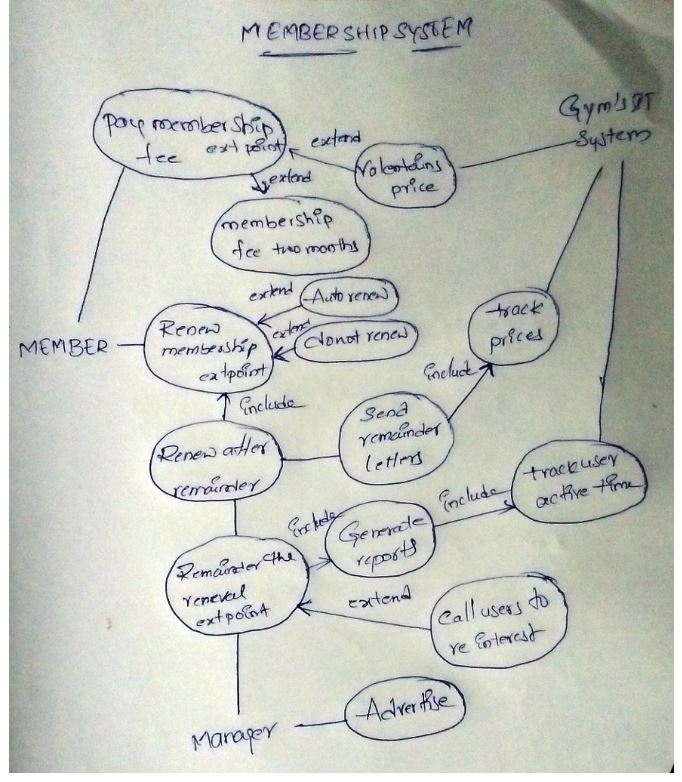 MEMBERSHIP SYSTEM
Gym's IT
System
pay membership
fee ext point
extend
Valentains
price
extend
membership
fee two months
extend
Auto renew
MEMBER
Renew
membership
extpoint
extend
donot renew
track
prices
include
include
Send
remainder
letters
Renew after
remainder
track user
active time
include
include
Generate
reports
Remainder the
reneval
extpoint
Extend
Call users to
re interest
Advertise
Manager